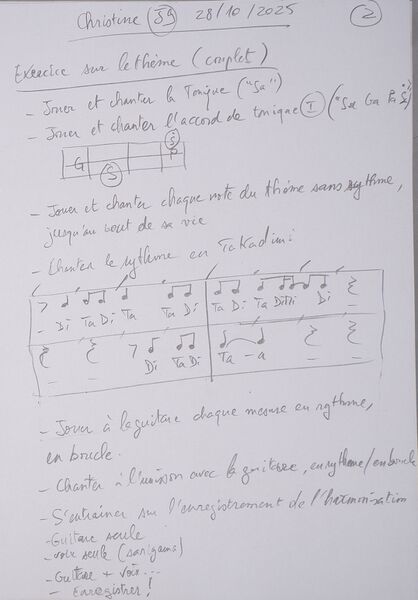 Christine 59 28/10/2025 2
Exercice sur le thème (couplet)
- Jouer et chanter la Tonique ("Sa")
- Jouer et chanter l'accord de tonique I ("Sa Ga Pa Ṡ")
Ṡ
G P
S
- Jouer et chanter chaque note du thème sans rythme,
jusqu'au bout de sa vie
- Chanter le rythme en TaKadimi
- Di Ta Di Ta Ta Di Ta Di Ta Di Di
- - Di Ta Di Ta - a - -
- Jouer à la guitare chaque mesure en rythme,
en boucle.
- Chanter à l'unisson avec la guitare, en rythme/en boucle
- S'entraîner sur l'enregistrement de l'harmonisation
- Guitare seule
- voix seule (sargams)
- Guitare + voix...
- Enregistrer!